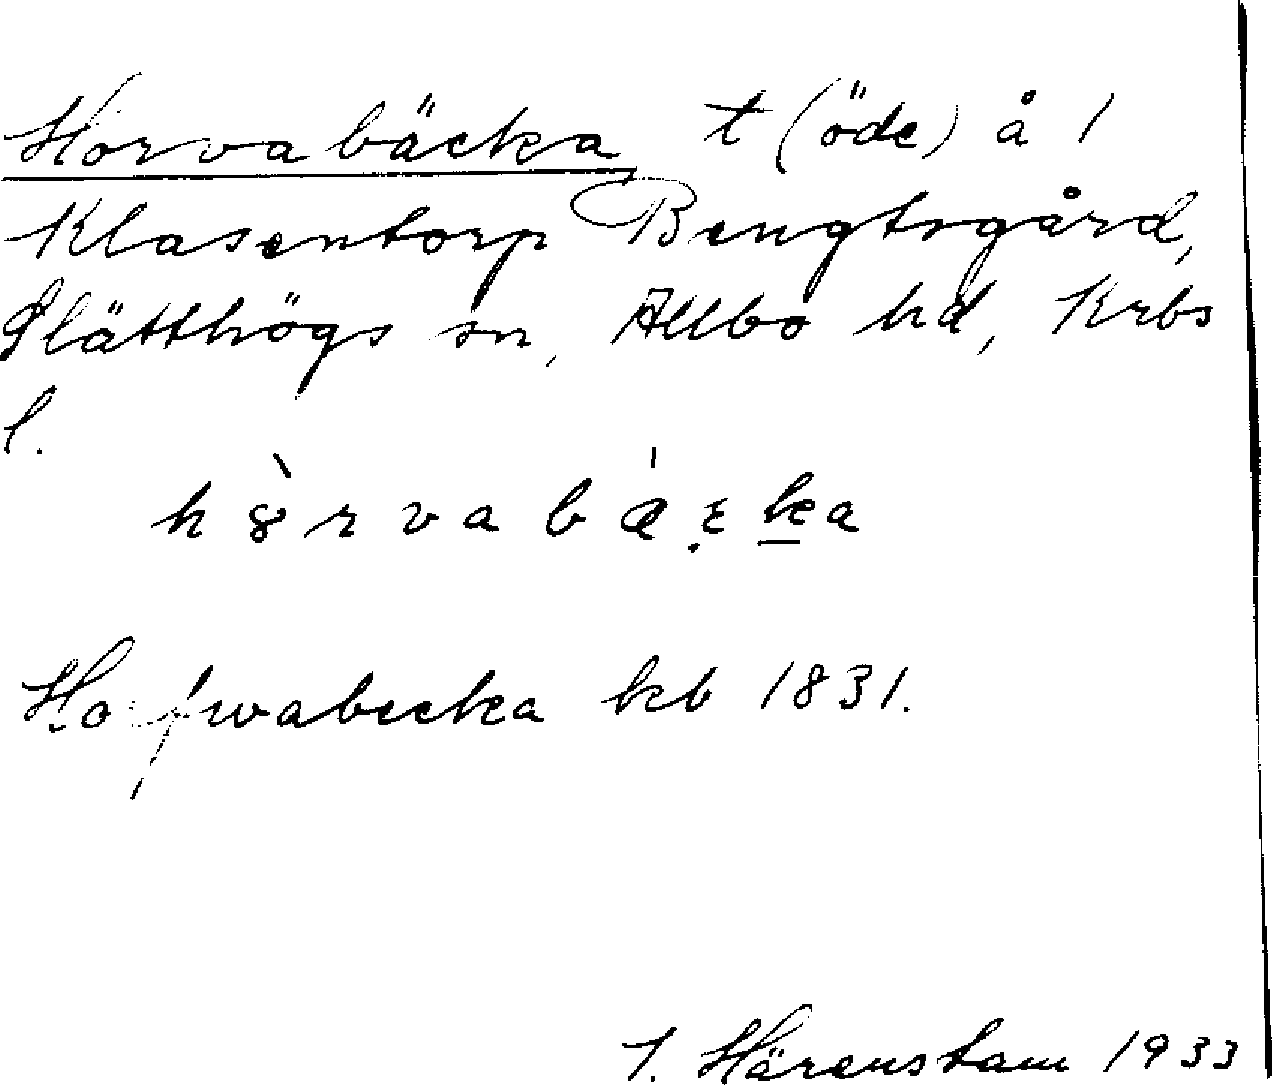 Horvabäcka t (öde) å 1
Klasentorp Bengtsgård,
Slätthögs sn, Allbo hd, Krbs
l.
Horfwabecka kb 1831.
J. Härenstam 1933